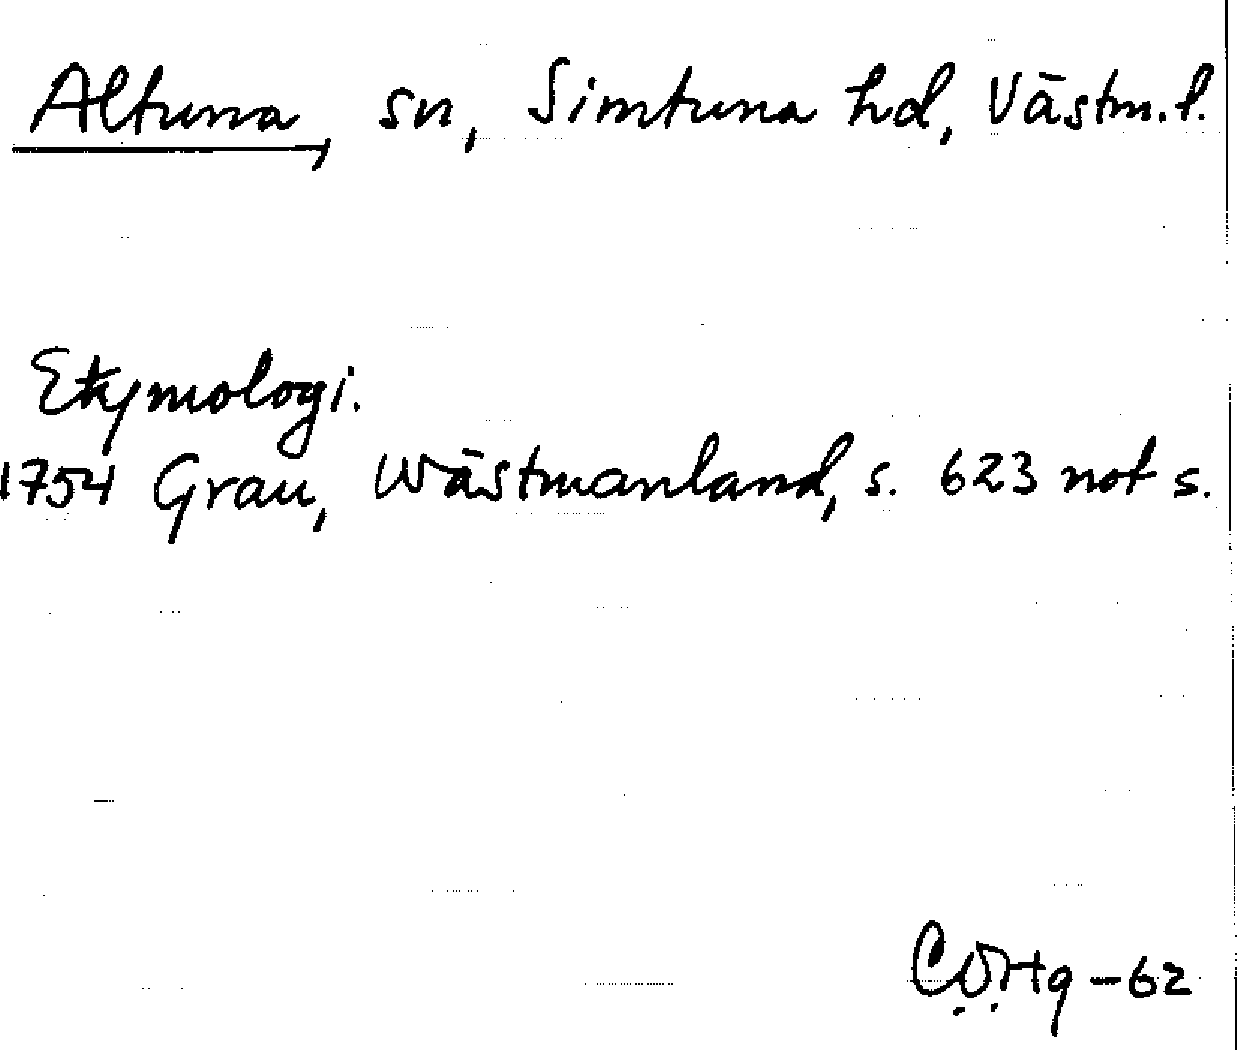 Altuna, sn, Simtuna hd, Västm. l.
Etymologi.
1754 Grau, Wästmanland, s. 623 not s.